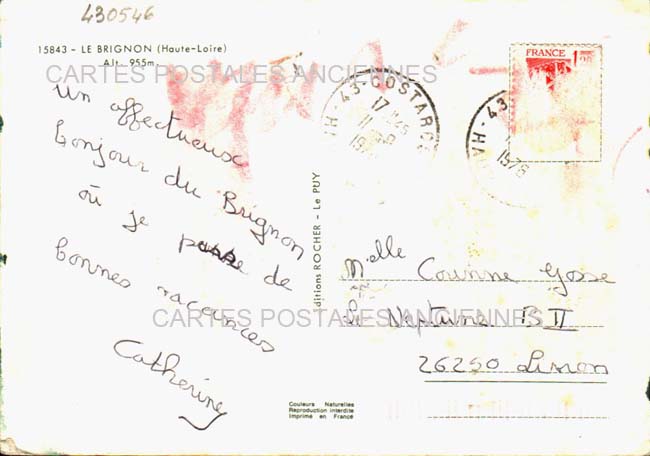 430546
15843 - LE BRIGNON (Haute-Loire)
Alt. 955m.
CARTES POSTALES ANCIENNES
un affectueux
bonjour du Brignon
où je passe de
bonnes vacances
Catherine
Editions ROCHER - Le PUY
43 - COSTAROS
17 H
11
43
1978
FRANCE
Melle Corinne Gosse
Neptune B II
26250 Livron
CARTES POSTALES ANCIENNES
Couleurs Naturelles
Reproduction interdite
Imprimé en France